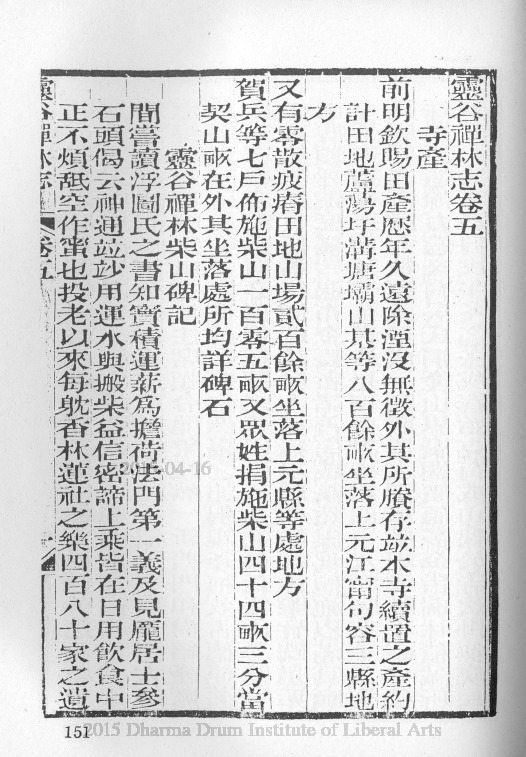 靈谷禪林志卷五
寺產
前明欽賜田產歷年久遠除湮沒無徵外其所賸存竝本寺續置之產約
計田地蘆蕩圩溝塘壩山基等八百餘畝坐落上元江甯句容三縣地
方
又有零散疲瘠田地山場貳百餘畝坐落上元縣等處地方
賀兵等七戶佈施柴山一百零五畝又眾姓捐施柴山四十四畝三分當
契山畝在外其坐落處所均詳碑石
靈谷禪林柴山碑記
間嘗讀浮圖氏之書知寶積運薪為擔荷法門第一義及見龐居士參
石頭偈云神通竝玅用運水與搬柴益信密諦上乘皆在日用飲食中
正不煩舐空作蜜也投老以來每躭香林蓮社之樂四百八十家之遺
靈谷禪林志
卷五
一
151
2015 Dharma Drum Institute of Liberal Arts
04-16